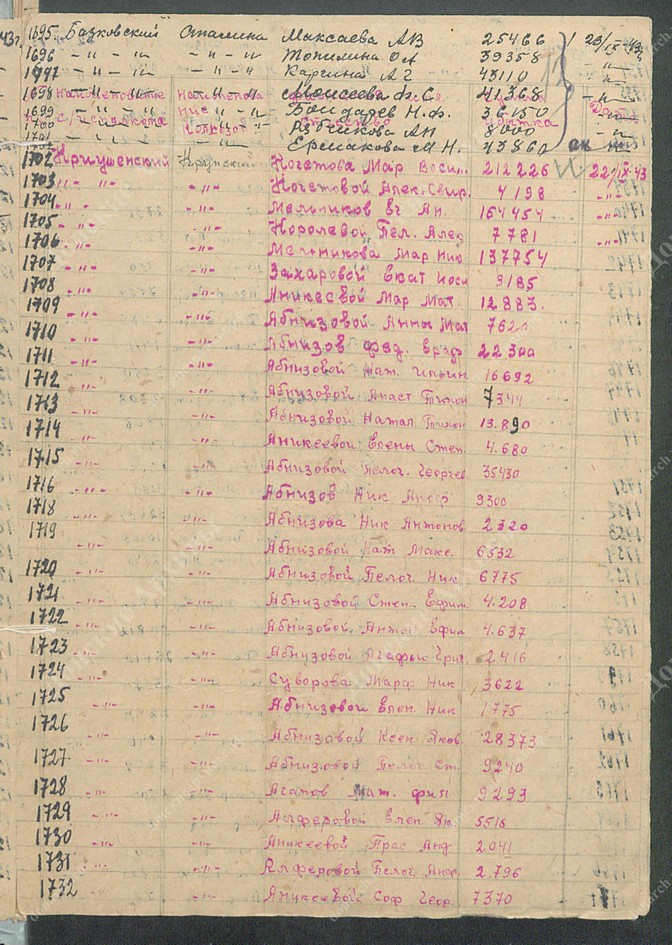 1695 Базковский Сталина Максаева А В 25466 23/IX-43
1696 -"- -"- -"- Топилина О А 39358 -"-
1697 -"- -"- -"- Каргина А Г 43110 -"-
1698 -"- -"- -"- Моисеева Ф. С. 41368 -"-
1699 -"- -"- Бондарев Н. Ф. 36150
1700 -"- -"- Рябчикова А Н 8000 -"-
1701 -"- -"- Ермакова М Н. 43860 -"-
1702 Криушенский Крупской Ногетова Мар Васил. 212226 22/IX-43
1703 -"- -"- Ногетовой Алек. Свир. 4198 -"-
1704 -"- -"- Мельников Ег Ан. 164454 -"-
1705 -"- -"- Королевой Пел. Алек 7781 -"-
1706 -"- -"- Мельникова Мар Ник 137754
1707 -"- -"- Захаровой Екат Иоси 9185
1708 -"- -"- Аникеевой Мар Мат. 12883.
1709 -"- -"- Абнизовой Анны Мат 7620
1710 -"- -"- Абнизов Фед. 22300
1711 -"- -"- Абнизовой Нат. Ильин 16692
1712 -"- -"- Абнизовой Анаст Тихон 7344
1713 -"- -"- Абнизовой Натал Тихон 13.890
1714 -"- -"- Аникеевой Елены Степ. 4.680
1715 -"- -"- Абнизовой Пелог. Георгев. 35430
1716 -"- -"- Абнизов Ник 9300
1718 -"- -"- Абнизова Ник Антонов 2320
1719 -"- -"- Абнизовой Нат Макс. 6532
1720 -"- -"- Абнизовой Пелог. Ник 6775
1721 -"- -"- Абнизовой Степ. Ефим. 4.208
1722 -"- -"- Абнизовой Антон Ефим 4.637
1723 -"- -"- Абнизовой Агафьи Григ. 2416
1724 -"- -"- Суворова Марф. Ник 3622
1725 -"- -"- Абнизовой Елен. Ник 1775
1726 -"- -"- Абнизовой Ксен. Яков 28373
1727 -"- -"- Абнизовой Пелог Ст. 9240
1728 -"- -"- Агапов Мат. Фил 9293
1729 -"- -"- Алферовой Елен Як. 5516
1730 -"- -"- Аникеевой Прас Анд 2041
1731 -"- -"- Алферовой Пелог. Анд. 2.796
1732 -"- Аникеевой Соф Геор. 7370